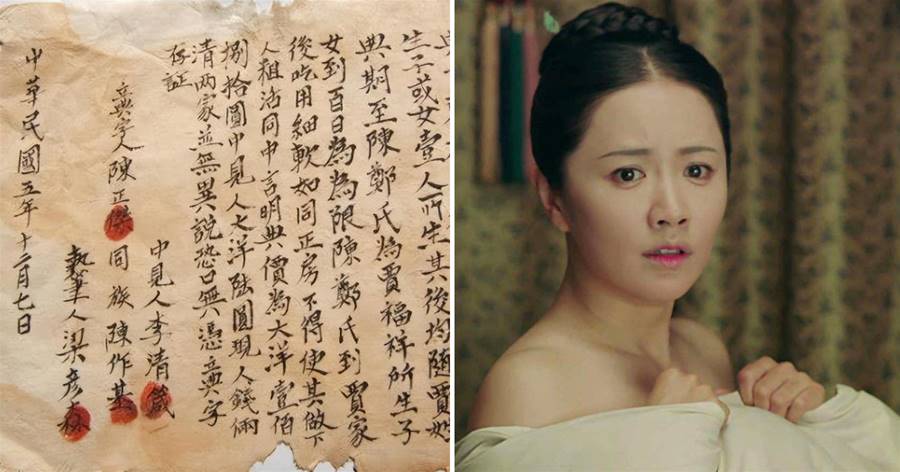 生子或女壹人所生其後均隨賈姓
典期至陳鄭氏為賈福祥所生子
女到百日為為限陳鄭氏到賈家
後吃用細軟如同正房不得使其做下
人粗活同中言明典價為大洋壹佰
捌拾圓中見人大洋陸圓現人錢兩
清兩家並無異說恐口無憑典字
存証
中見人李清箴
典字人陳正傑 同族陳作基
執筆人梁彥森
中華民國五年十二月七日